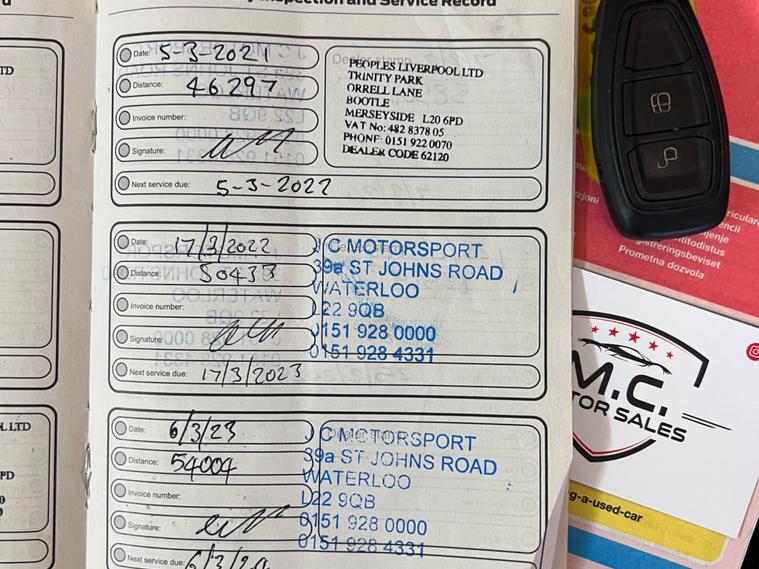 Inspection and Service Record
Date: 5-3-2021
Distance: 46297
Invoice number:
Signature:
Next service due: 5-3-2022
Dealer stamp
PEOPLES LIVERPOOL LTD
TRINITY PARK
ORRELL LANE
BOOTLE
MERSEYSIDE L20 6PD
VAT No: 482 8378 05
PHONE: 0151 922 0070
DEALER CODE 62120
Date: 17/3/2022
Distance: 50433
Invoice number:
Signature:
Next service due: 17/3/2023
J C MOTORSPORT
39a ST JOHNS ROAD
WATERLOO
L22 9QB
0151 928 0000
0151 928 4331
Date: 6/3/23
Distance: 54004
Invoice number:
Signature:
Next service due: 6/3/
Dealer stamp
J C MOTORSPORT
39a ST JOHNS ROAD
WATERLOO
L22 9QB
0151 928 0000
0151 928 4331
TD
L LTD
PD
M.C.
TOR SALES
g-a-used-car
Prometna dozvola